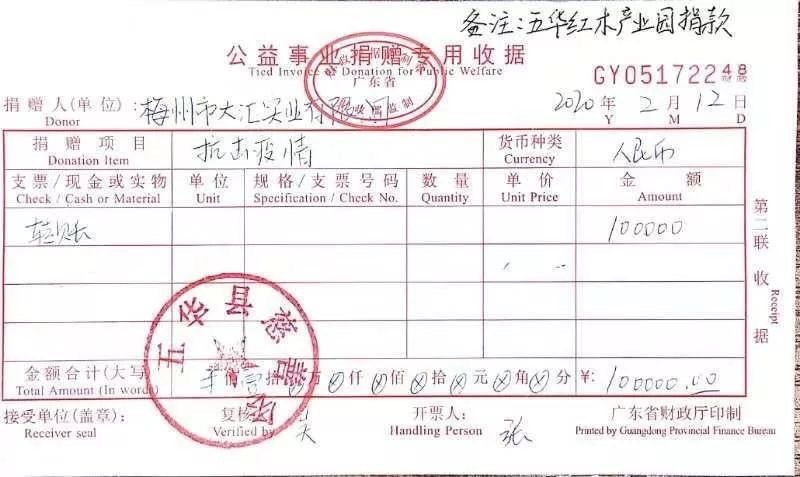 备注:五华红木产业园捐款
公益事业捐赠专用收据
Tied Invoice of Donation for Public Welfare
广东省
财政厅监制
GY05172248
捐赠人(单位): 梅州市大汇实业有限公司 2020年 2月 12日
Donor Y M D
捐赠项目 抗击疫情 货币种类 人民币
Donation Item Currency
支票/现金或实物 单位 规格/支票号码 数量 单价 金额
Check / Cash or Material Unit Specification / Check No. Quantity Unit Price Amount
转账 100000
第二联 收据
Receipt
五华县慈善会
金额合计(大写) 仟 佰 壹拾 万 ⊗仟 ⊗佰 ⊗拾 ⊗元 ⊗角 ⊗分 ¥: 100000.00
Total Amount (In words)
接受单位(盖章): 复核 开票人: 张 广东省财政厅印制
Receiver seal Verified by Handling Person Printed by Guangdong Provincial Finance Bureau